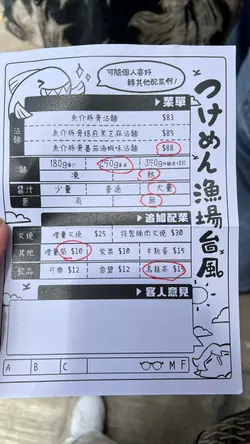 可隨個人喜好
轉其他配菜啊!
つけめん漁場台風
菜單
沾麵
魚介豚骨沾麵 $83
魚介豚骨擔麻黑芝麻沾麵 $85
魚介豚骨蕃茄海蝦味沾麵 $88
麵 180g 250g 350g
凍 熱
醬汁 少量 普通 大量
蔥 有 無
追加配菜
叉燒 增量叉燒 $25 特製豬肉叉燒 $30
其他 增量 $10 紫菜 $10 $15
飲品 可樂 $12 雪碧 $12 烏龍茶 $15
客人意見
A B C M F